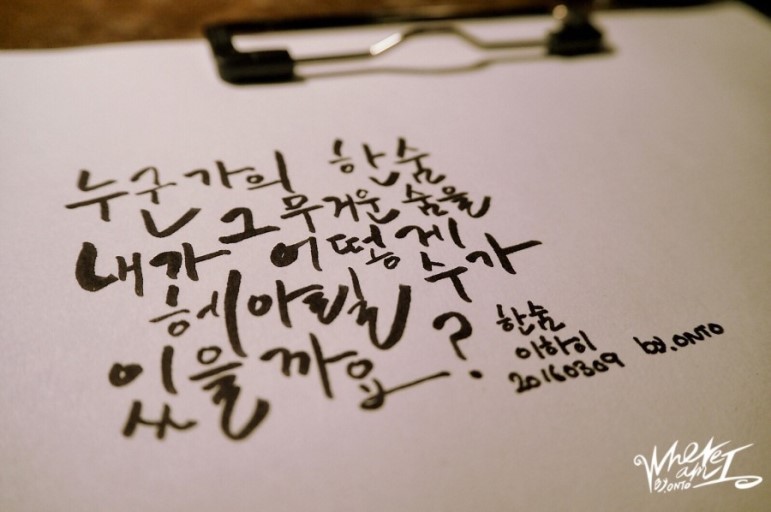 누군가의 한숨
그 무거운 숨을
내가 어떻게
헤아릴 수가
있을까요?
한숨
이하이
20160309 by.ONTO
Where
am I
BY.ONTO